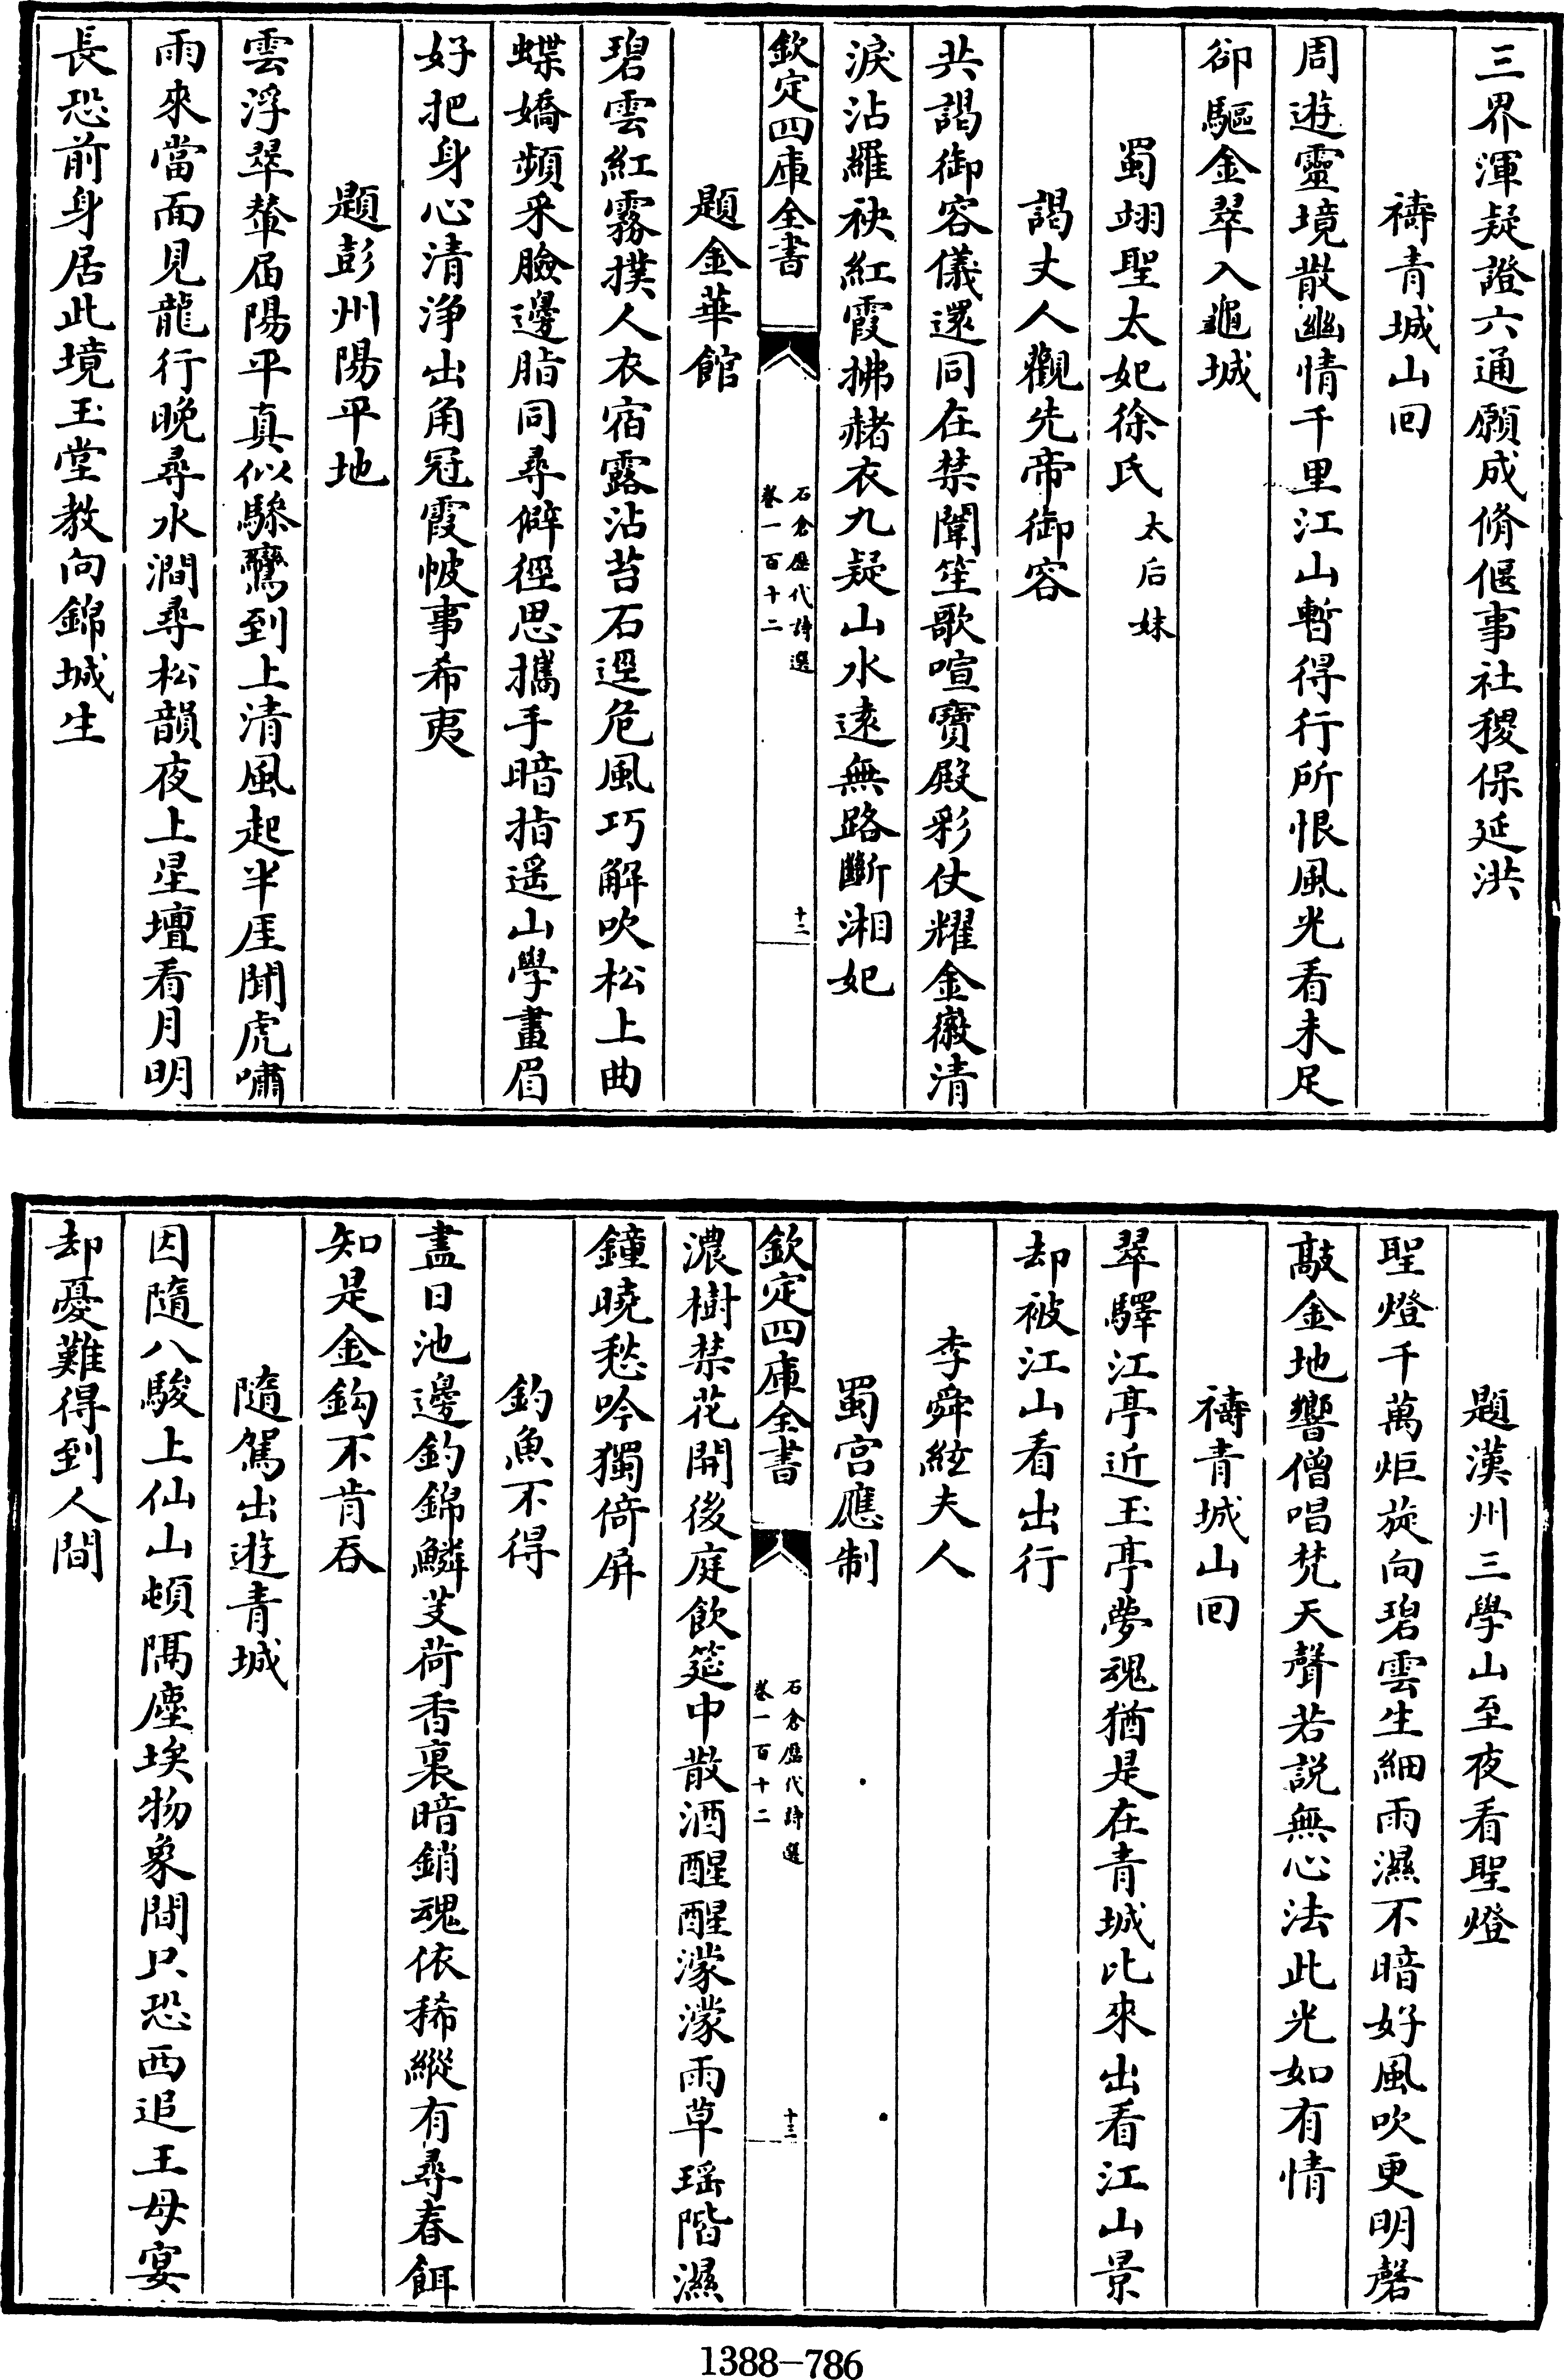 三界渾疑證六通願成脩偃事社稷保延洪
禱青城山回
周遊靈境散幽情千里江山暫得行所恨風光看未足
卻驅金翠入龜城
蜀翊聖太妃徐氏太后妹
謁丈人觀先帝御容
共謁御容儀還同在禁闈笙歌喧寶殿彩仗耀金徽清
淚沾羅袂紅霞拂赭衣九疑山水遠無路斷湘妃
欽定四庫全書
石倉歷代詩選
卷一百十二
十二
題金華館
碧雲紅霧撲人衣宿露沾苔石逕危風巧解吹松上曲
蝶嬌頻采臉邊脂同尋僻徑思攜手暗指遥山學畫眉
好把身心清淨出角冠霞帔事希夷
題彭州陽平地
雲浮翠輦屆陽平真似驂鸞到上清風起半厓聞虎嘯
雨來當面見龍行晚尋水澗尋松韻夜上星壇看月明
長恐前身居此境玉堂教向錦城生
題漢州三學山至夜看聖燈
聖燈千萬炬旋向碧雲生細雨濕不暗好風吹更明磬
敲金地響僧唱梵天聲若説無心法此光如有情
禱青城山回
翠驛江亭近玉亭夢魂猶是在青城比來出看江山景
却被江山看出行
李舜絃夫人
蜀宫應制
欽定四庫全書
石倉歷代詩選
卷一百十二
十三
濃樹禁花開後庭飲筵中散酒醒醒濛濛雨草瑶階濕
鐘曉愁吟獨倚屏
釣魚不得
盡日池邊釣錦鱗芰荷香裏暗銷魂依稀縱有尋春餌
知是金鈎不肯吞
隨駕出遊青城
因隨八駿上仙山頓隔塵埃物象間只恐西追王母宴
却憂難得到人間
1388-786